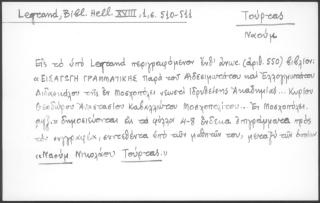 Legrand, Bibl. Hell. XVIII, 1, σ. 510-511
Τούρτας
Ναούμ
Εἰς τὸ ὑπὸ Legrand περιγραφόμενον ἐνθ' ἀνωτ. (ἀριθ. 550) βιβλίον:
«ΕΙΣΑΓΩΓΗ ΓΡΑΜΜΑΤΙΚΗΣ παρὰ τοῦ Αἰδεσιμωτάτου καὶ Ἐλλογιμωτάτου
Διδασκάλου τῆς ἐν Μοσχοπόλει νεωστὶ ἱδρυθείσης Ἀκαδημίας... Κυρίου
Θεοδώρου Ἀναστασίου Καβαλλιώτου Μοσχοπολίτου... Ἐν Μοσχοπόλει
δημοσιεύονται εἰς τὰ φύλλα 4-8 ἕνδεκα ἐπιγράμματα πρὸς
τὸν συγγραφέα, συντεθέντα ὑπὸ τῶν μαθητῶν του, μεταξὺ τῶν ὁποίων
«Ναοὺμ Νικολάου Τούρτας.»